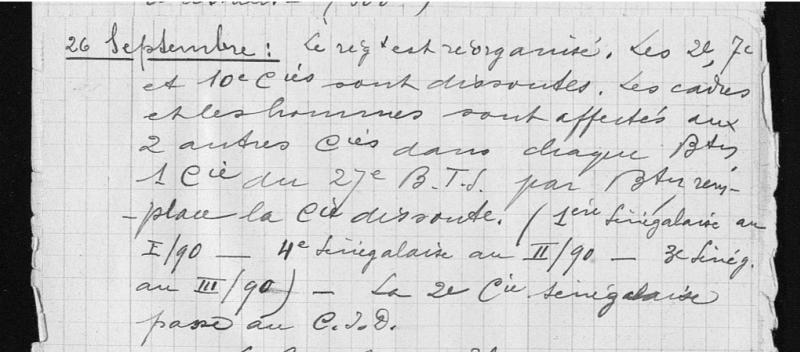 26 Septembre : Le régt est réorganisé. Les 2e, 7e
et 10e Cies sont dissoutes. Les cadres
et les hommes sont affectés aux
2 autres Cies dans chaque Btn
1 Cie du 27e B.T.S. par Btn rem-
-place la Cie dissoute. (1ère Sénégalaise au
I/90 — 4e Sénégalaise au II/90 — 3e Sénég.
au III/90) — La 2e Cie sénégalaise
passe au C.I.D.